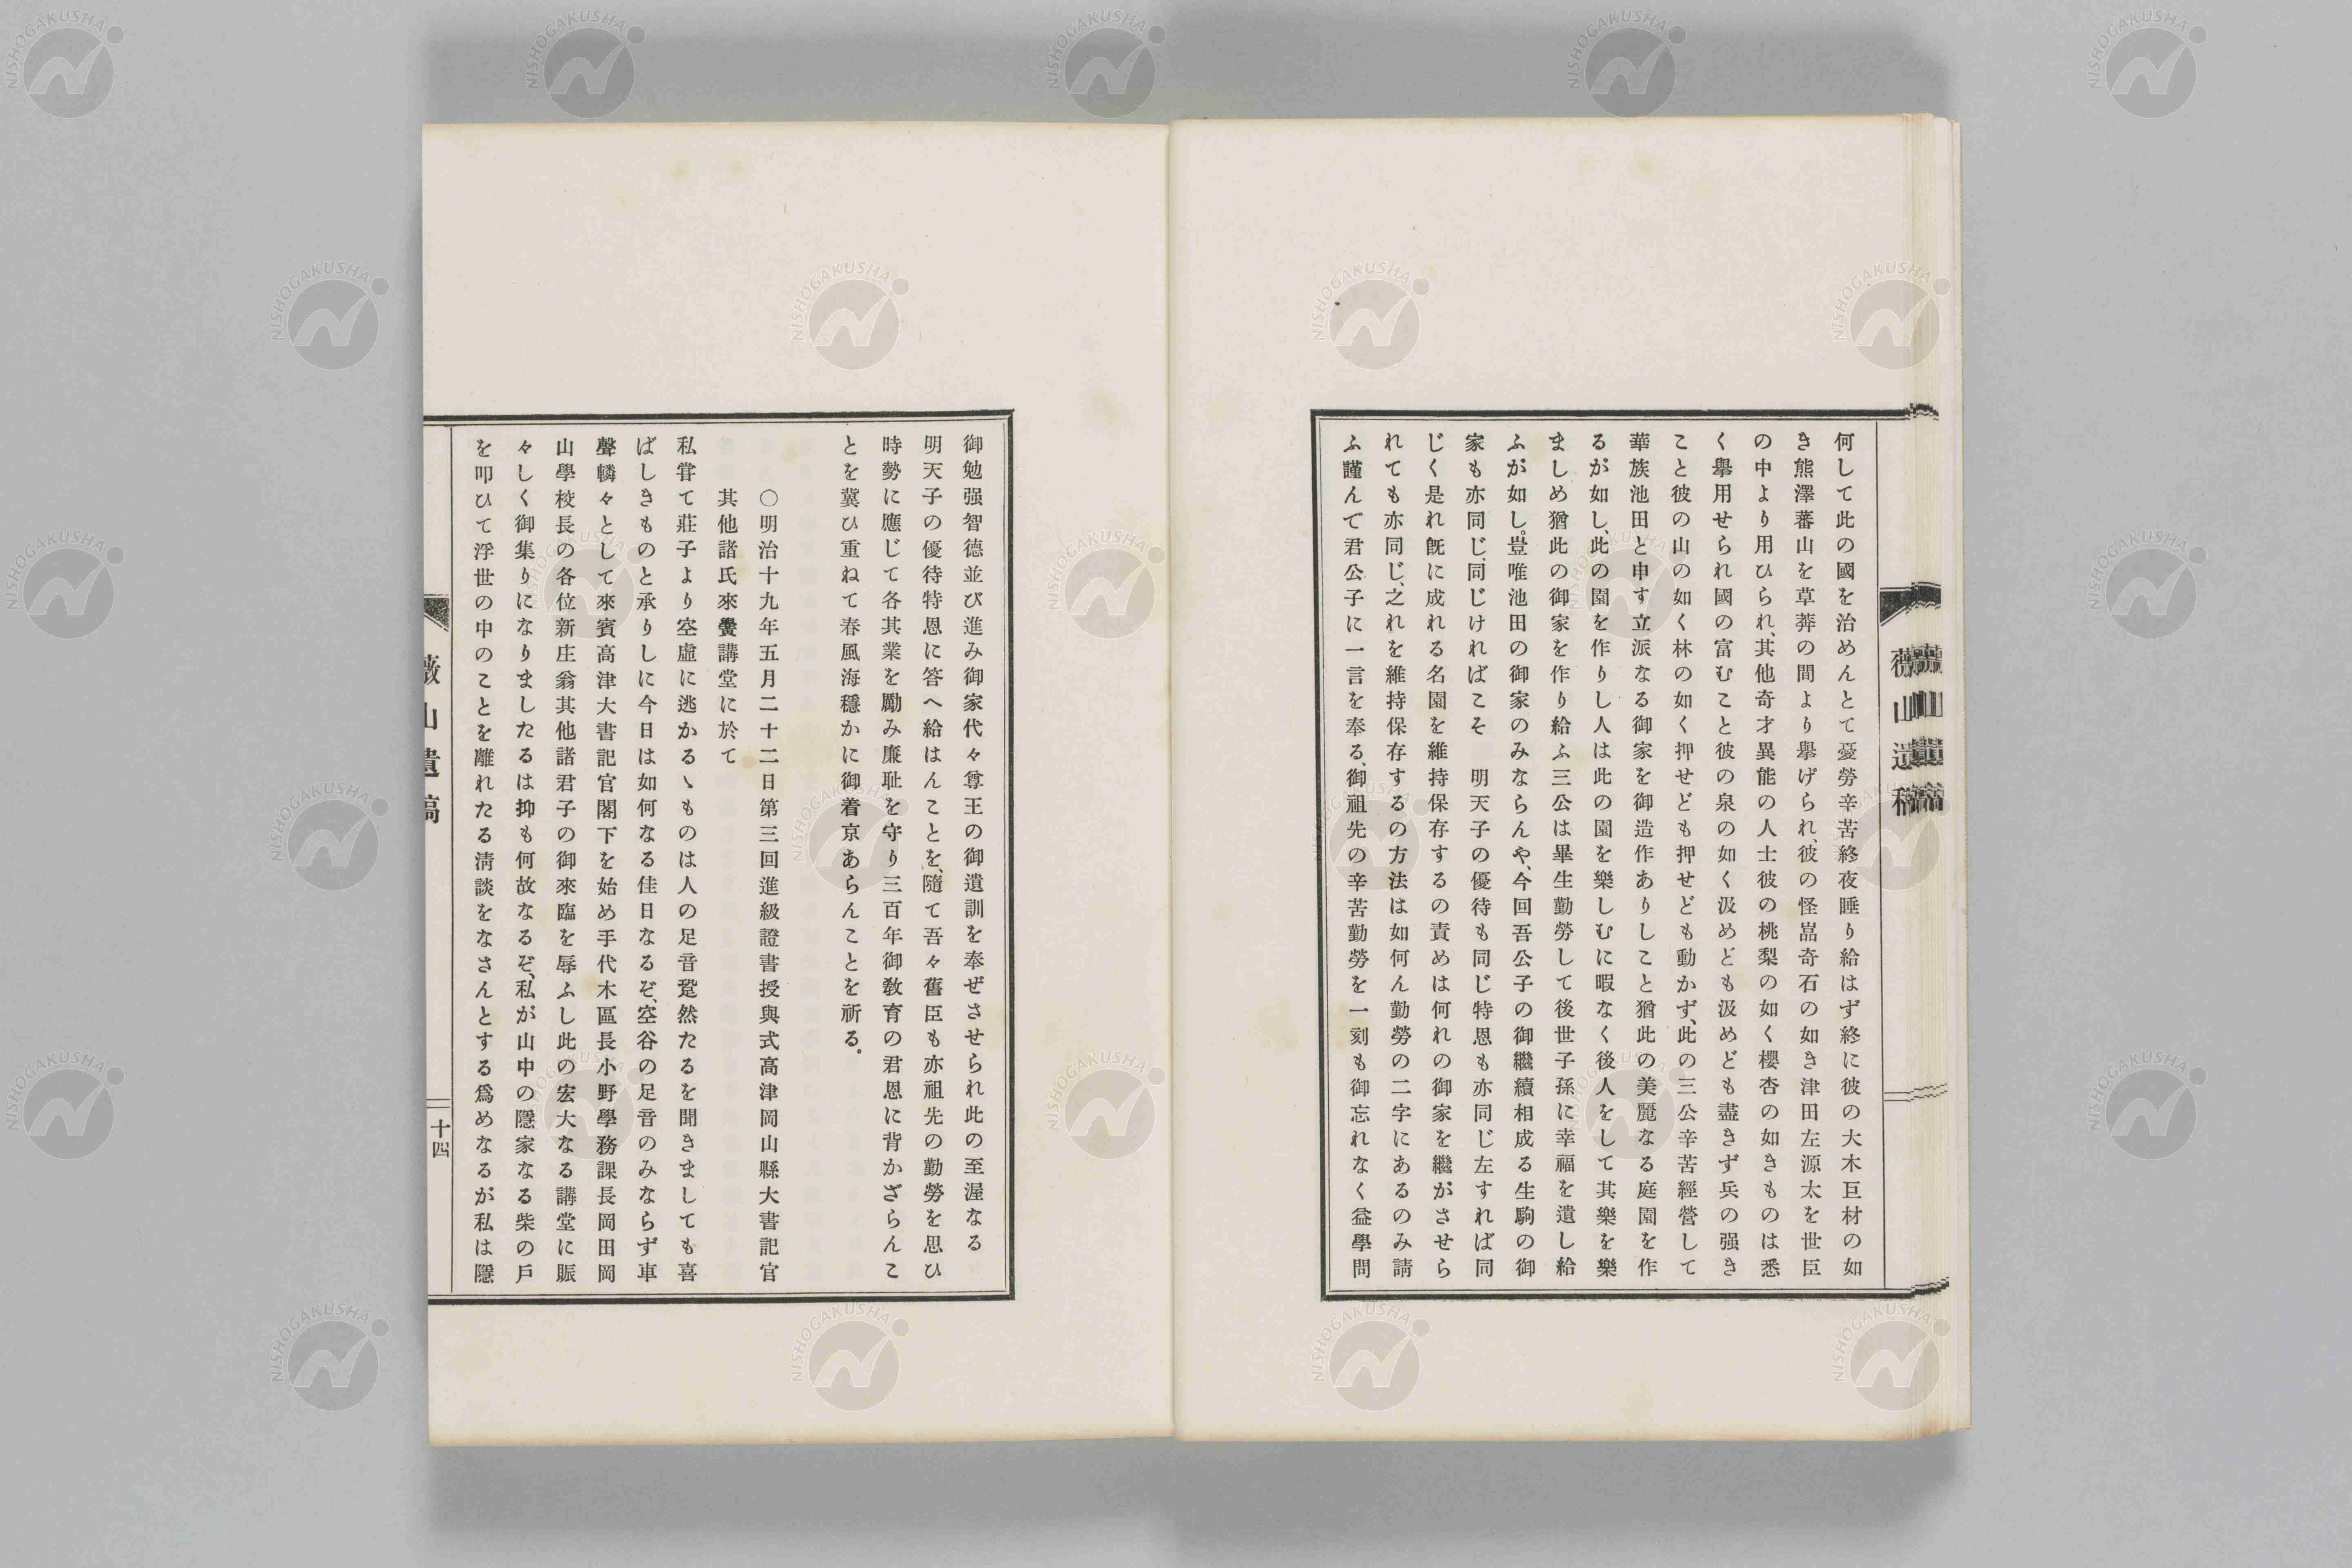 薇山遺稿
何して此の國を治めんとて憂勞辛苦終夜睡り給はず終に彼の大木巨材の如
き熊澤蕃山を草莽の間より擧げられ、彼の怪嵓奇石の如き津田左源太を世臣
の中より用ひられ、其他奇才異能の人士彼の桃梨の如く櫻杏の如きものは悉
く擧用せられ國の富むこと彼の泉の如く汲めども汲めども盡きず兵の强き
こと彼の山の如く林の如く押せども押せども動かず、此の三公辛苦經營して
華族池田と申す立派なる御家を御造作ありしこと猶此の美麗なる庭園を作
るが如し、此の園を作りし人は此の園を樂しむに暇なく後人をして其樂を樂
ましめ猶此の御家を作り給ふ三公は畢生勤勞して後世子孫に幸福を遺し給
ふが如し。豈唯池田の御家のみならんや、今回吾公子の御繼續相成る生駒の御
家も亦同じ、同じければこそ　明天子の優待も同じ特恩も亦同じ左すれば同
じく是れ旣に成れる名園を維持保存するの責めは何れの御家を繼がさせら
れても亦同じ、之れを維持保存するの方法は如何ん勤勞の二字にあるのみ請
ふ謹んで君公子に一言を奉る、御祖先の辛苦勤勞を一刻も御忘れなく益學問
御勉强智德並び進み御家代々尊王の御遺訓を奉ぜさせられ此の至渥なる
明天子の優待特恩に答へ給はんことを、隨て吾々舊臣も亦祖先の勤勞を思ひ
時勢に應じて各其業を勵み廉耻を守り三百年御敎育の君恩に背かざらんこ
とを冀ひ重ねて春風海穩かに御着京あらんことを祈る。
○明治十九年五月二十二日第三回進級證書授與式高津岡山縣大書記官
其他諸氏來黌講堂に於て
私甞て莊子より空虛に逃かるヽものは人の足音跫然たるを聞きましても喜
ばしきものと承りしに今日は如何なる佳日なるぞ、空谷の足音のみならず車
聲轔々として來賓高津大書記官閣下を始め手代木區長小野學務課長岡田岡
山學校長の各位新庄翁其他諸君子の御來臨を辱ふし此の宏大なる講堂に賑
々しく御集りになりましたるは抑も何故なるぞ、私が山中の隱家なる柴の戶
を叩ひて浮世の中のことを離れたる淸談をなさんとする爲めなるが私は隱
薇山遺稿
十四
NISHOGAKUSHA